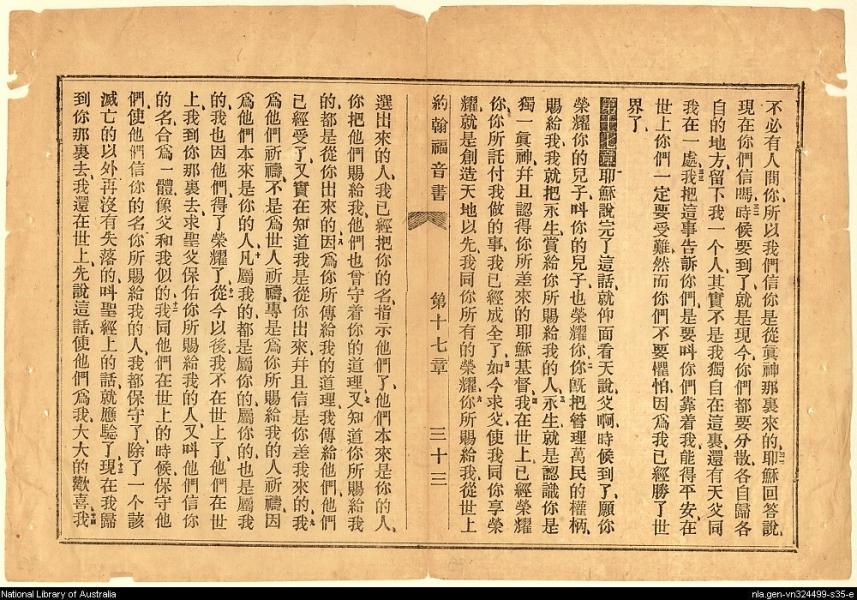 不必有人問你所以我們信你是從眞神那裏來的耶穌回答說
現在你們信嗎時候要到了就是現今你們都要分散各自歸各
自的地方留下我一个人其實不是我獨自在這裏還有天父同
我在一處我把這事告訴你們是要叫你們靠着我能得平安在
世上你們一定要受難然而你們不要懼怕因爲我已經勝了世
界了
第十七章耶穌說完了這話就仰面看天說父啊時候到了願你
榮耀你的兒子叫你的兒子也榮耀你你旣把管理萬民的權柄
賜給我我就把永生賞給你所賜給我的人永生就是認識你是
獨一眞神幷且認得你所差來的耶穌基督我在世上已經榮耀
你你所託付我做的事我已經成全了如今求父使我同你享榮
耀就是創造天地以先我同你所有的榮耀你所賜給我從世上
約翰福音書 第十七章 三十三
選出來的人我已經把你的名指示他們了他們本來是你的人
你把他們賜給我他們也曾守着你的道理又知道你所賜給我
的都是從你出來的因爲你所傳給我的道理我傳給他們他們
已經受了又實在知道我是從你出來幷且信是你差我來的我
爲他們祈禱不是爲世人祈禱專是爲你所賜給我的人祈禱因
爲他們本來是你的人凡屬我的都是屬你的屬你的也是屬我
的我也因他們得了榮耀了從今以後我不在世上了他們在世
上我到你那裏去求聖父保佑你所賜給我的人又叫他們信你
的名合爲一體像父和我似的我同他們在世上的時候保守他
們使他們信你的名你所賜給我的人我都保守了除了一个該
滅亡的以外再沒有失落的叫聖經上的話就應驗了現在我歸
到你那裏去我還在世上先說這話使他們爲我大大的歡喜我
National Library of Australia
nla.gen-vn324499-s35-e